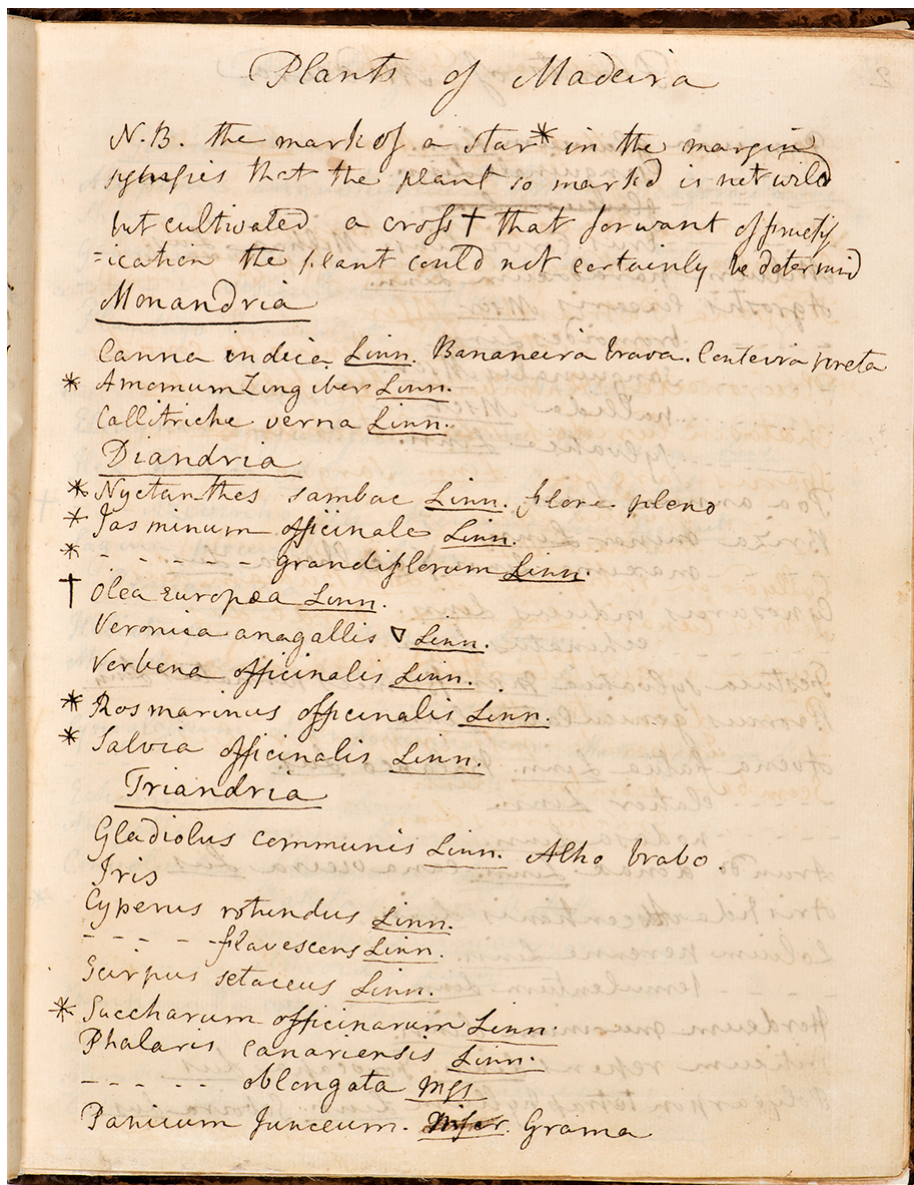 Plants of Madeira
N.B. the mark of a star * in the margin
signifies that the plant so mark'd is not wild
but cultivated a cross † that for want of fructif
=ication the plant could not certainly be determind
Monandria
Canna indica Linn. Bananeira brava. Conteira preta
* Amomum Zingiber Linn.
Callitriche verna Linn.
Diandria
* Nyctanthes sambac Linn. flore pleno
* Jasminum officinale Linn.
* - - - - - - grandiflorum Linn.
† Olea Europæa Linn.
Veronica anagallis ∇ Linn.
Verbena officinalis Linn.
* Rosmarinus officinalis Linn.
* Salvia officinalis Linn.
Triandria
Gladiolus communis Linn. Alho brabo.
Iris
Cyperus rotundus Linn.
- - - - - flavescens Linn.
Scirpus setaceus Linn.
* Saccharum officinarum Linn.
Phalaris canariensis Linn.
- - - - - - oblongata Mss
Panicum Junceum. Grama